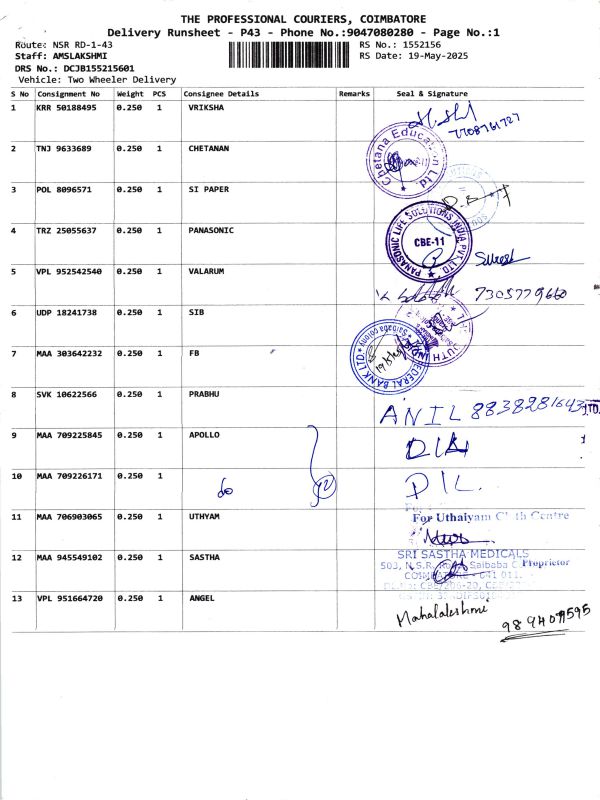 THE PROFESSIONAL COURIERS, COIMBATORE
Delivery Runsheet - P43 - Phone No.:9047080280 - Page No.:1
Route: NSR RD-1-43
RS No.: 1552156
Staff: AMSLAKSHMI
RS Date: 19-May-2025
DRS No.: DCJB155215601
Vehicle: Two Wheeler Delivery
S No Consignment No Weight PCS Consignee Details Remarks Seal & Signature
1 KRR 50188495 0.250 1 VRIKSHA
7708761727
2 TNJ 9633689 0.250 1 CHETANAN
Chetana Education Ltd.
3 POL 8096571 0.250 1 SI PAPER
4 TRZ 25055637 0.250 1 PANASONIC
PANASONIC LIFE SOLUTIONS INDIA PVT. LTD.
CBE-11
Suresh
5 VPL 952542540 0.250 1 VALARUM
7305779660
6 UDP 18241738 0.250 1 SIB
SOUTH INDI
7 MAA 303642232 0.250 1 FB
FEDERAL BANK LTD Saibaba colony
8 SVK 10622566 0.250 1 PRABHU
ANIL 8838281643
LTD.
9 MAA 709225845 0.250 1 APOLLO
10 MAA 709226171 0.250 1
do
DIL
11 MAA 706903065 0.250 1 UTHYAM
For Uthaiyam Centre
Proprietor
12 MAA 945549102 0.250 1 SASTHA
SRI SASTHA MEDICALS
503, N.S.R. Saibaba
641 011
13 VPL 951664720 0.250 1 ANGEL
Mahalakshmi